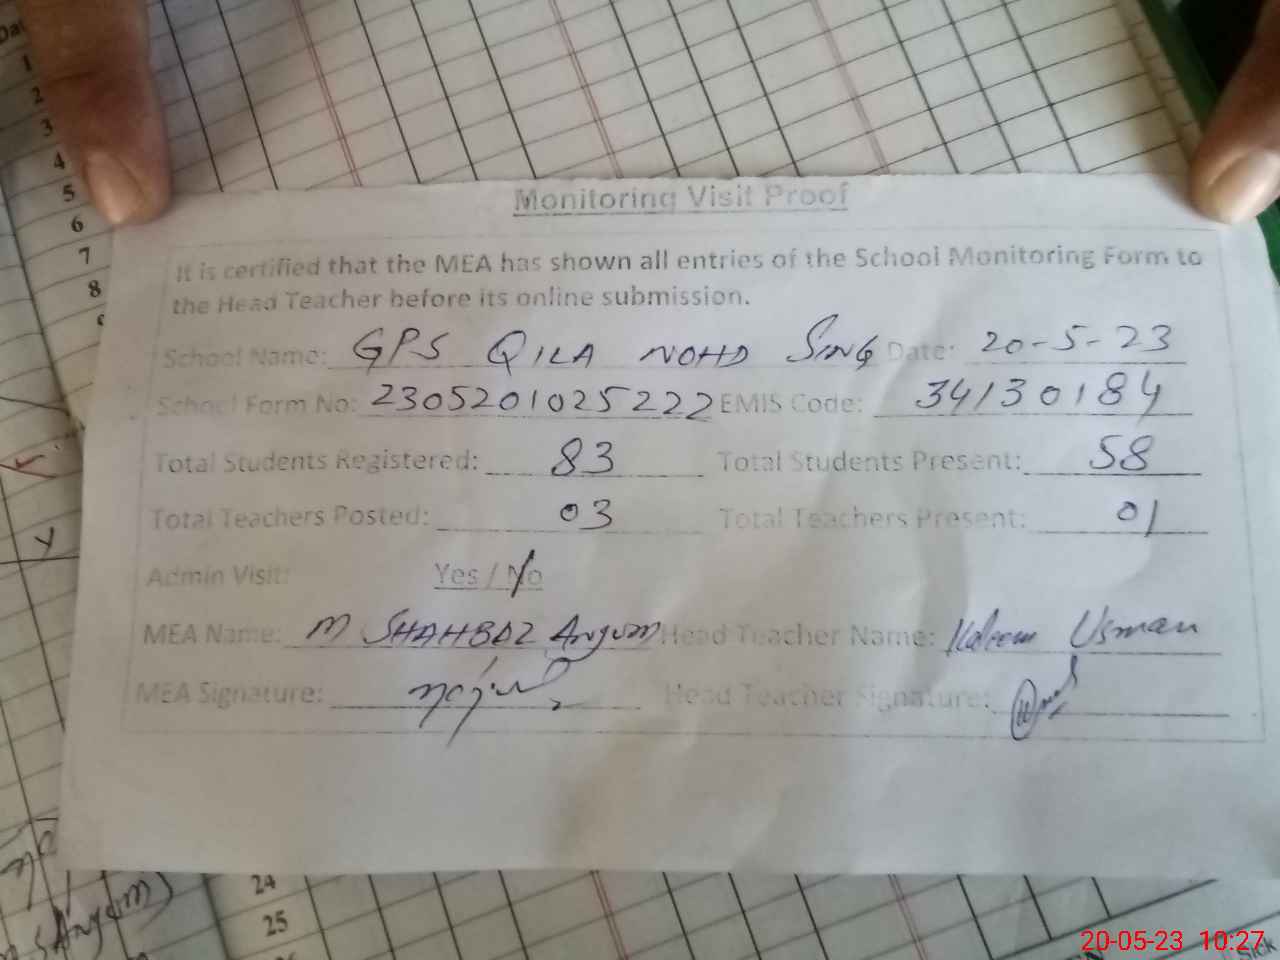 Monitoring Visit Proof
It is certified that the MEA has shown all entries of the School Monitoring Form to
the Head Teacher before its online submission.
School Name: GPS QILA NOHD SING Date: 20-5-23
School Form No: 2305201025222 EMIS Code: 34130184
Total Students Registered: 83 Total Students Present: 58
Total Teachers Posted: 03 Total Teachers Present: 01
Admin Visit: Yes / No
MEA Name: M SHAHBAZ Anjum Head Teacher Name: Kaleem Usman
MEA Signature: Head Teacher Signature:
1
2
3
4
5
6
7
8
24
25
20-05-23 10:27